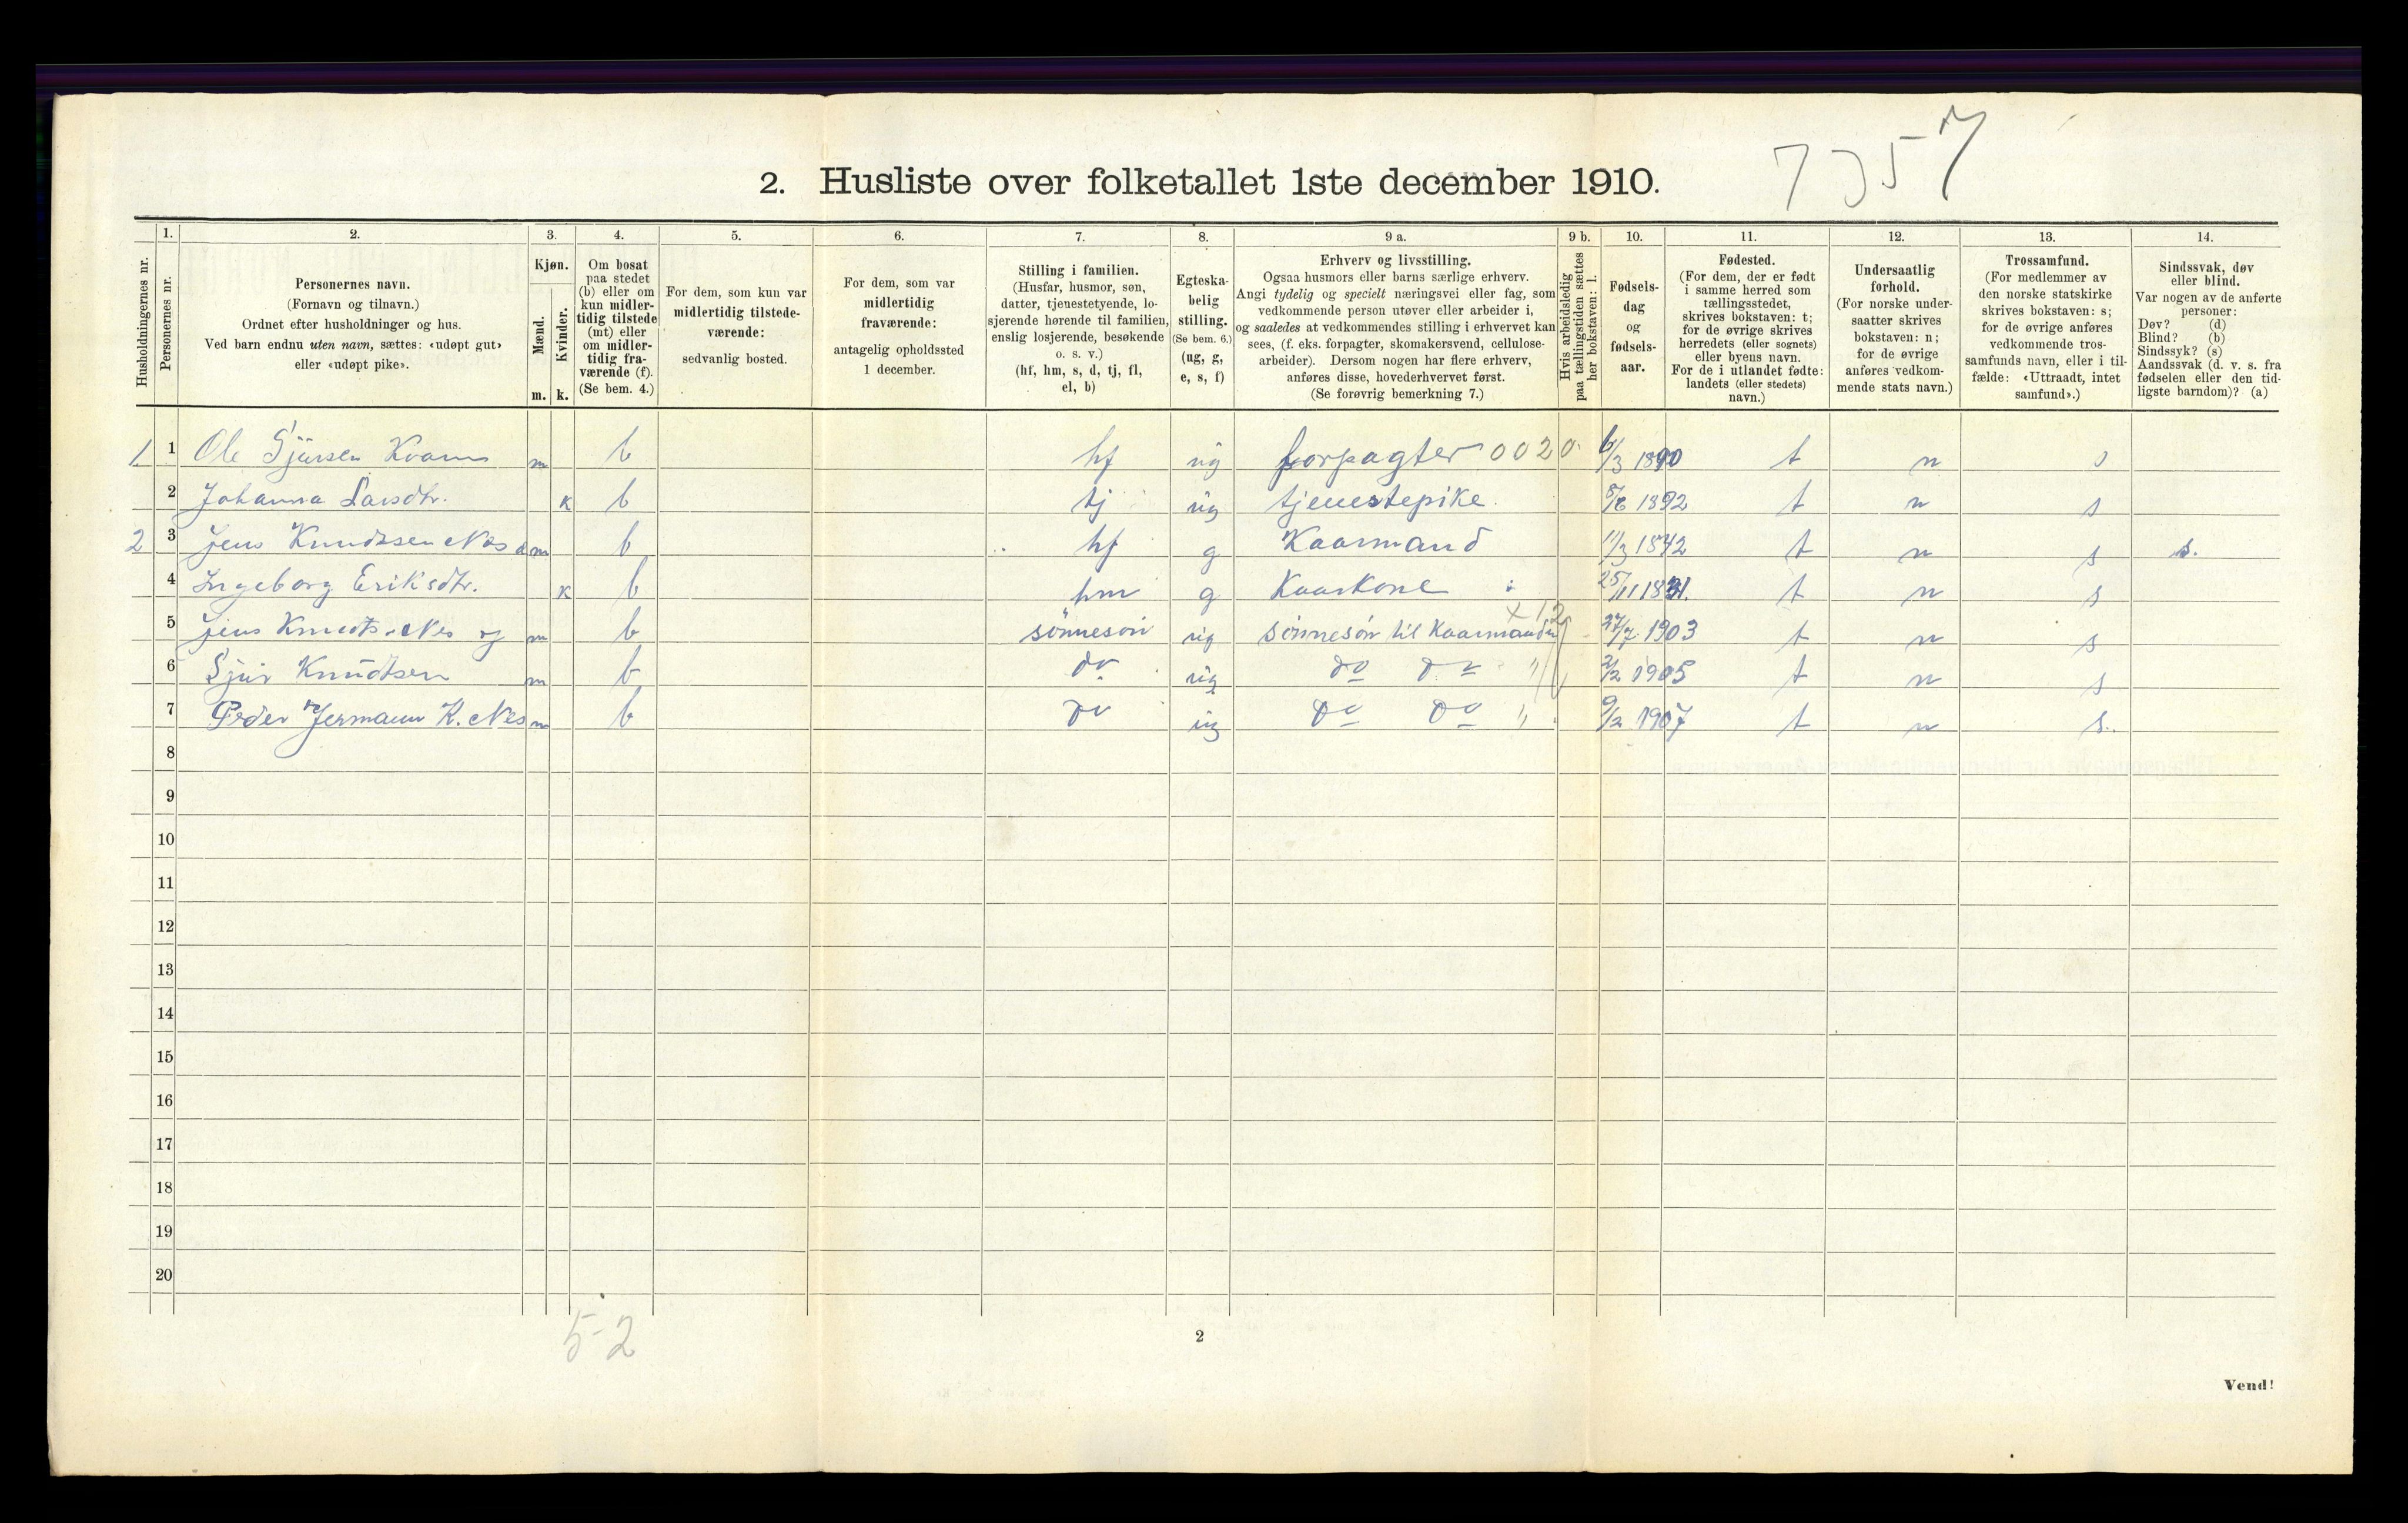 7357
2. Husliste over folketallet 1ste december 1910.
Husholdningernes nr.
1. Personernes nr.
2. Personernes navn. (Fornavn og tilnavn.) Ordnet efter husholdninger og hus. Ved barn endnu uten navn, sættes: «udøpt gut» eller «udøpt pike».
3. Kjøn. Mænd. m. Kvinder. k.
4. Om bosat paa stedet (b) eller om kun midlertidig tilstede (mt) eller om midlertidig fraværende (f). (Se bem. 4.)
5. For dem, som kun var midlertidig tilstedeværende: sedvanlig bosted.
6. For dem, som var midlertidig fraværende: antagelig opholdssted 1 december.
7. Stilling i familien. (Husfar, husmor, søn, datter, tjenestetyende, losjerende hørende til familien, enslig losjerende, besøkende o. s. v.) (hf, hm, s, d, tj, fl, el, b)
8. Egteskabelig stilling. (Se bem. 6.) (ug, g, e, s, f)
9 a. Erhverv og livsstilling. Ogsaa husmors eller barns særlige erhverv. Angi tydelig og specielt næringsvei eller fag, som vedkommende person utøver eller arbeider i, og saaledes at vedkommendes stilling i erhvervet kan sees, (f. eks. forpagter, skomakersvend, cellulosearbeider). Dersom nogen har flere erhverv, anføres disse, hovederhvervet først. (Se forøvrig bemerkning 7.)
9 b. Hvis arbeidsledig paa tællingstiden sættes her bokstaven: l.
10. Fødselsdag og fødselsaar.
11. Fødested. (For dem, der er født i samme herred som tællingsstedet, skrives bokstaven: t; for de øvrige skrives herredets (eller sognets) eller byens navn. For de i utlandet fødte: landets (eller stedets) navn.)
12. Undersaatlig forhold. (For norske undersaatter skrives bokstaven: n; for de øvrige anføres vedkommende stats navn.)
13. Trossamfund. (For medlemmer av den norske statskirke skrives bokstaven: s; for de øvrige anføres vedkommende trossamfunds navn, eller i tilfælde: «Uttraadt, intet samfund».)
14. Sindssvak, døv eller blind. Var nogen av de anførte personer: Døv? (d) Blind? (b) Sindssyk? (s) Aandssvak (d. v. s. fra fødselen eller den tidligste barndom)? (a)
1. 1 Ole Sjursen Kvam m b hf ug forpagter 0020 6/3 1890 t n s
2 Johanna Larsdtr. k b tj ug tjenestepike. 1892 t n s
2 3 Jens Knudtsen Nes m b hf g Kaarmand 11/3 1842 t n s s.
4 Ingeborg Eriksdtr. k b hm g Kaarkone 25/11 1831. t n s
5 Jens Knudts. Nes m b sönnesön ug sönnesön til Kaarmanden 27/7 1903 t n s
6 Sjur Knudtsen m b do ug do do " 2/2 1905 t n s
7 Peder Jermann K. Nes m b do ug do do " 9/2 1907 t n s.
8
9
10
11
12
13
14
15
16
17
18
19
20
5-2
2
Vend!